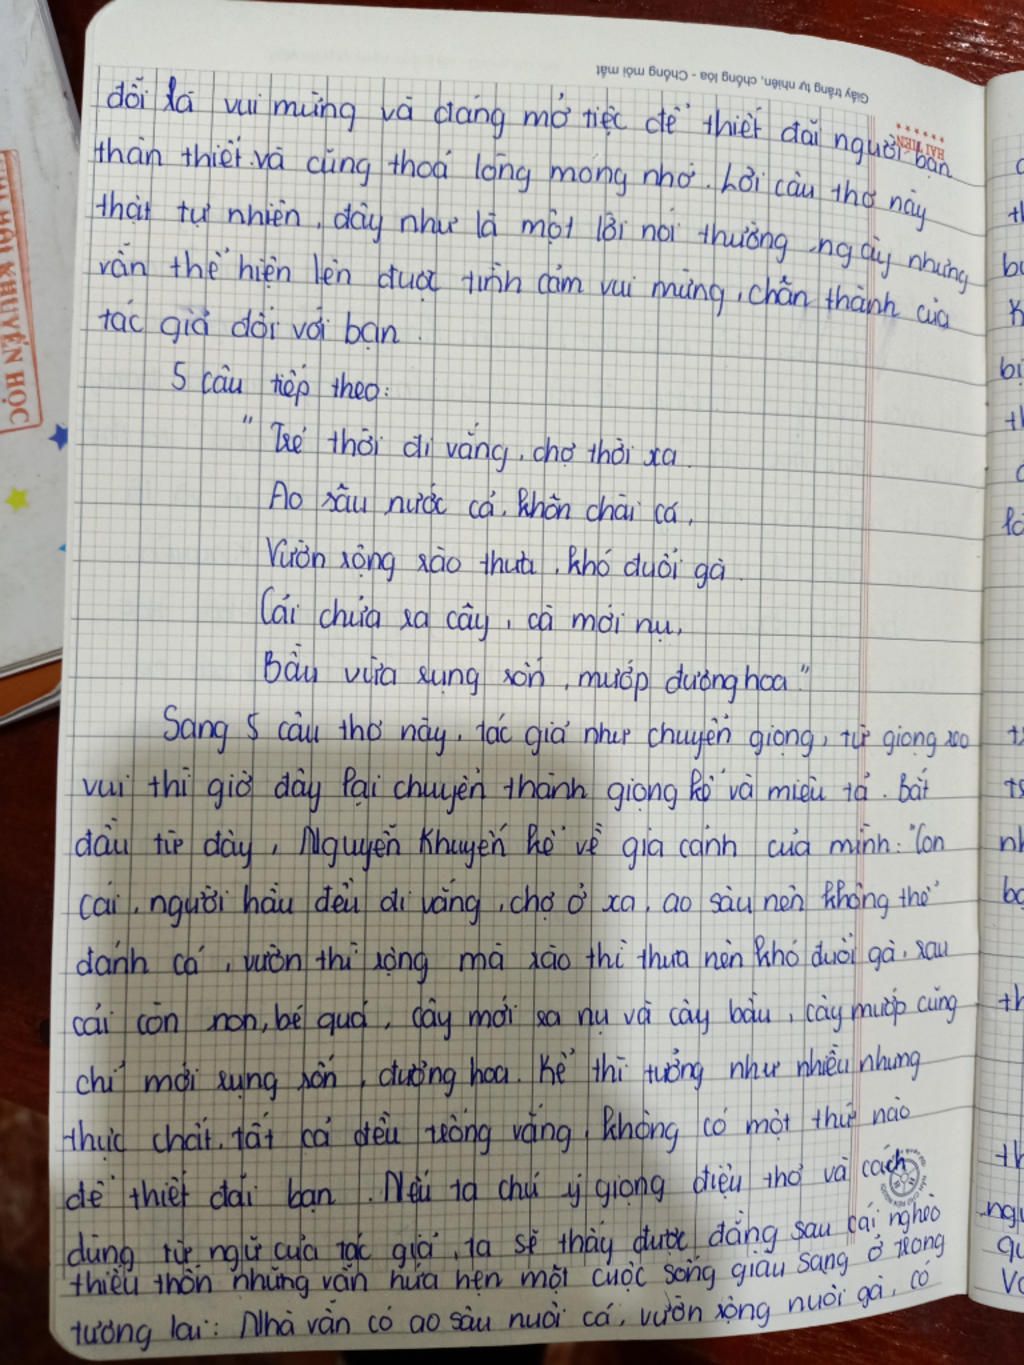 Giấy trắng tự nhiên, chống lóa - Chống mỏi mắt
HẢI TIẾN
dồi là vui mừng và đang mở tiệc để thiết đãi người bạn
thân thiết và cũng thoả lòng mong nhớ. Lời câu thơ này
thật tự nhiên, đây như là một lời nói thường ngày nhưng
vẫn thể hiện lên được tình cảm vui mừng, chân thành của
tác giả đối với bạn.
5 câu tiếp theo:
"Trẻ thời đi vắng, chợ thời xa.
Ao sâu nước cả, khôn chài cá,
Vườn rộng rào thưa, khó đuổi gà.
Cải chửa ra cây, cà mới nụ,
Bầu vừa rụng rốn, mướp đương hoa."
Sang 5 câu thơ này, tác giả như chuyển giọng, từ giọng reo
vui thì giờ đây lại chuyển thành giọng kể và miêu tả. Bắt
đầu từ đây, Nguyễn Khuyến kể về gia cảnh của mình: "Con
cái, người hầu đều đi vắng, chợ ở xa, ao sâu nên không thể
đánh cá, vườn thì rộng mà rào thì thưa nên khó đuổi gà, rau
cải còn non, bé quá, cây mới ra nụ và cây bầu, cây mướp cũng
chỉ mới rụng rốn, đương hoa. Kể thì tưởng như nhiều nhưng
thực chất, tất cả đều trống vắng, không có một thứ nào
để thiết đãi bạn. Nếu ta chú ý giọng điệu thơ và cách
dùng từ ngữ của tác giả, ta sẽ thấy được đằng sau cái nghèo
thiếu thốn nhưng vẫn hứa hẹn một cuộc sống giàu sang ở trong
tương lai: Nhà vẫn có ao sâu nuôi cá, vườn rộng nuôi gà, có
KHUYẾN HỌC